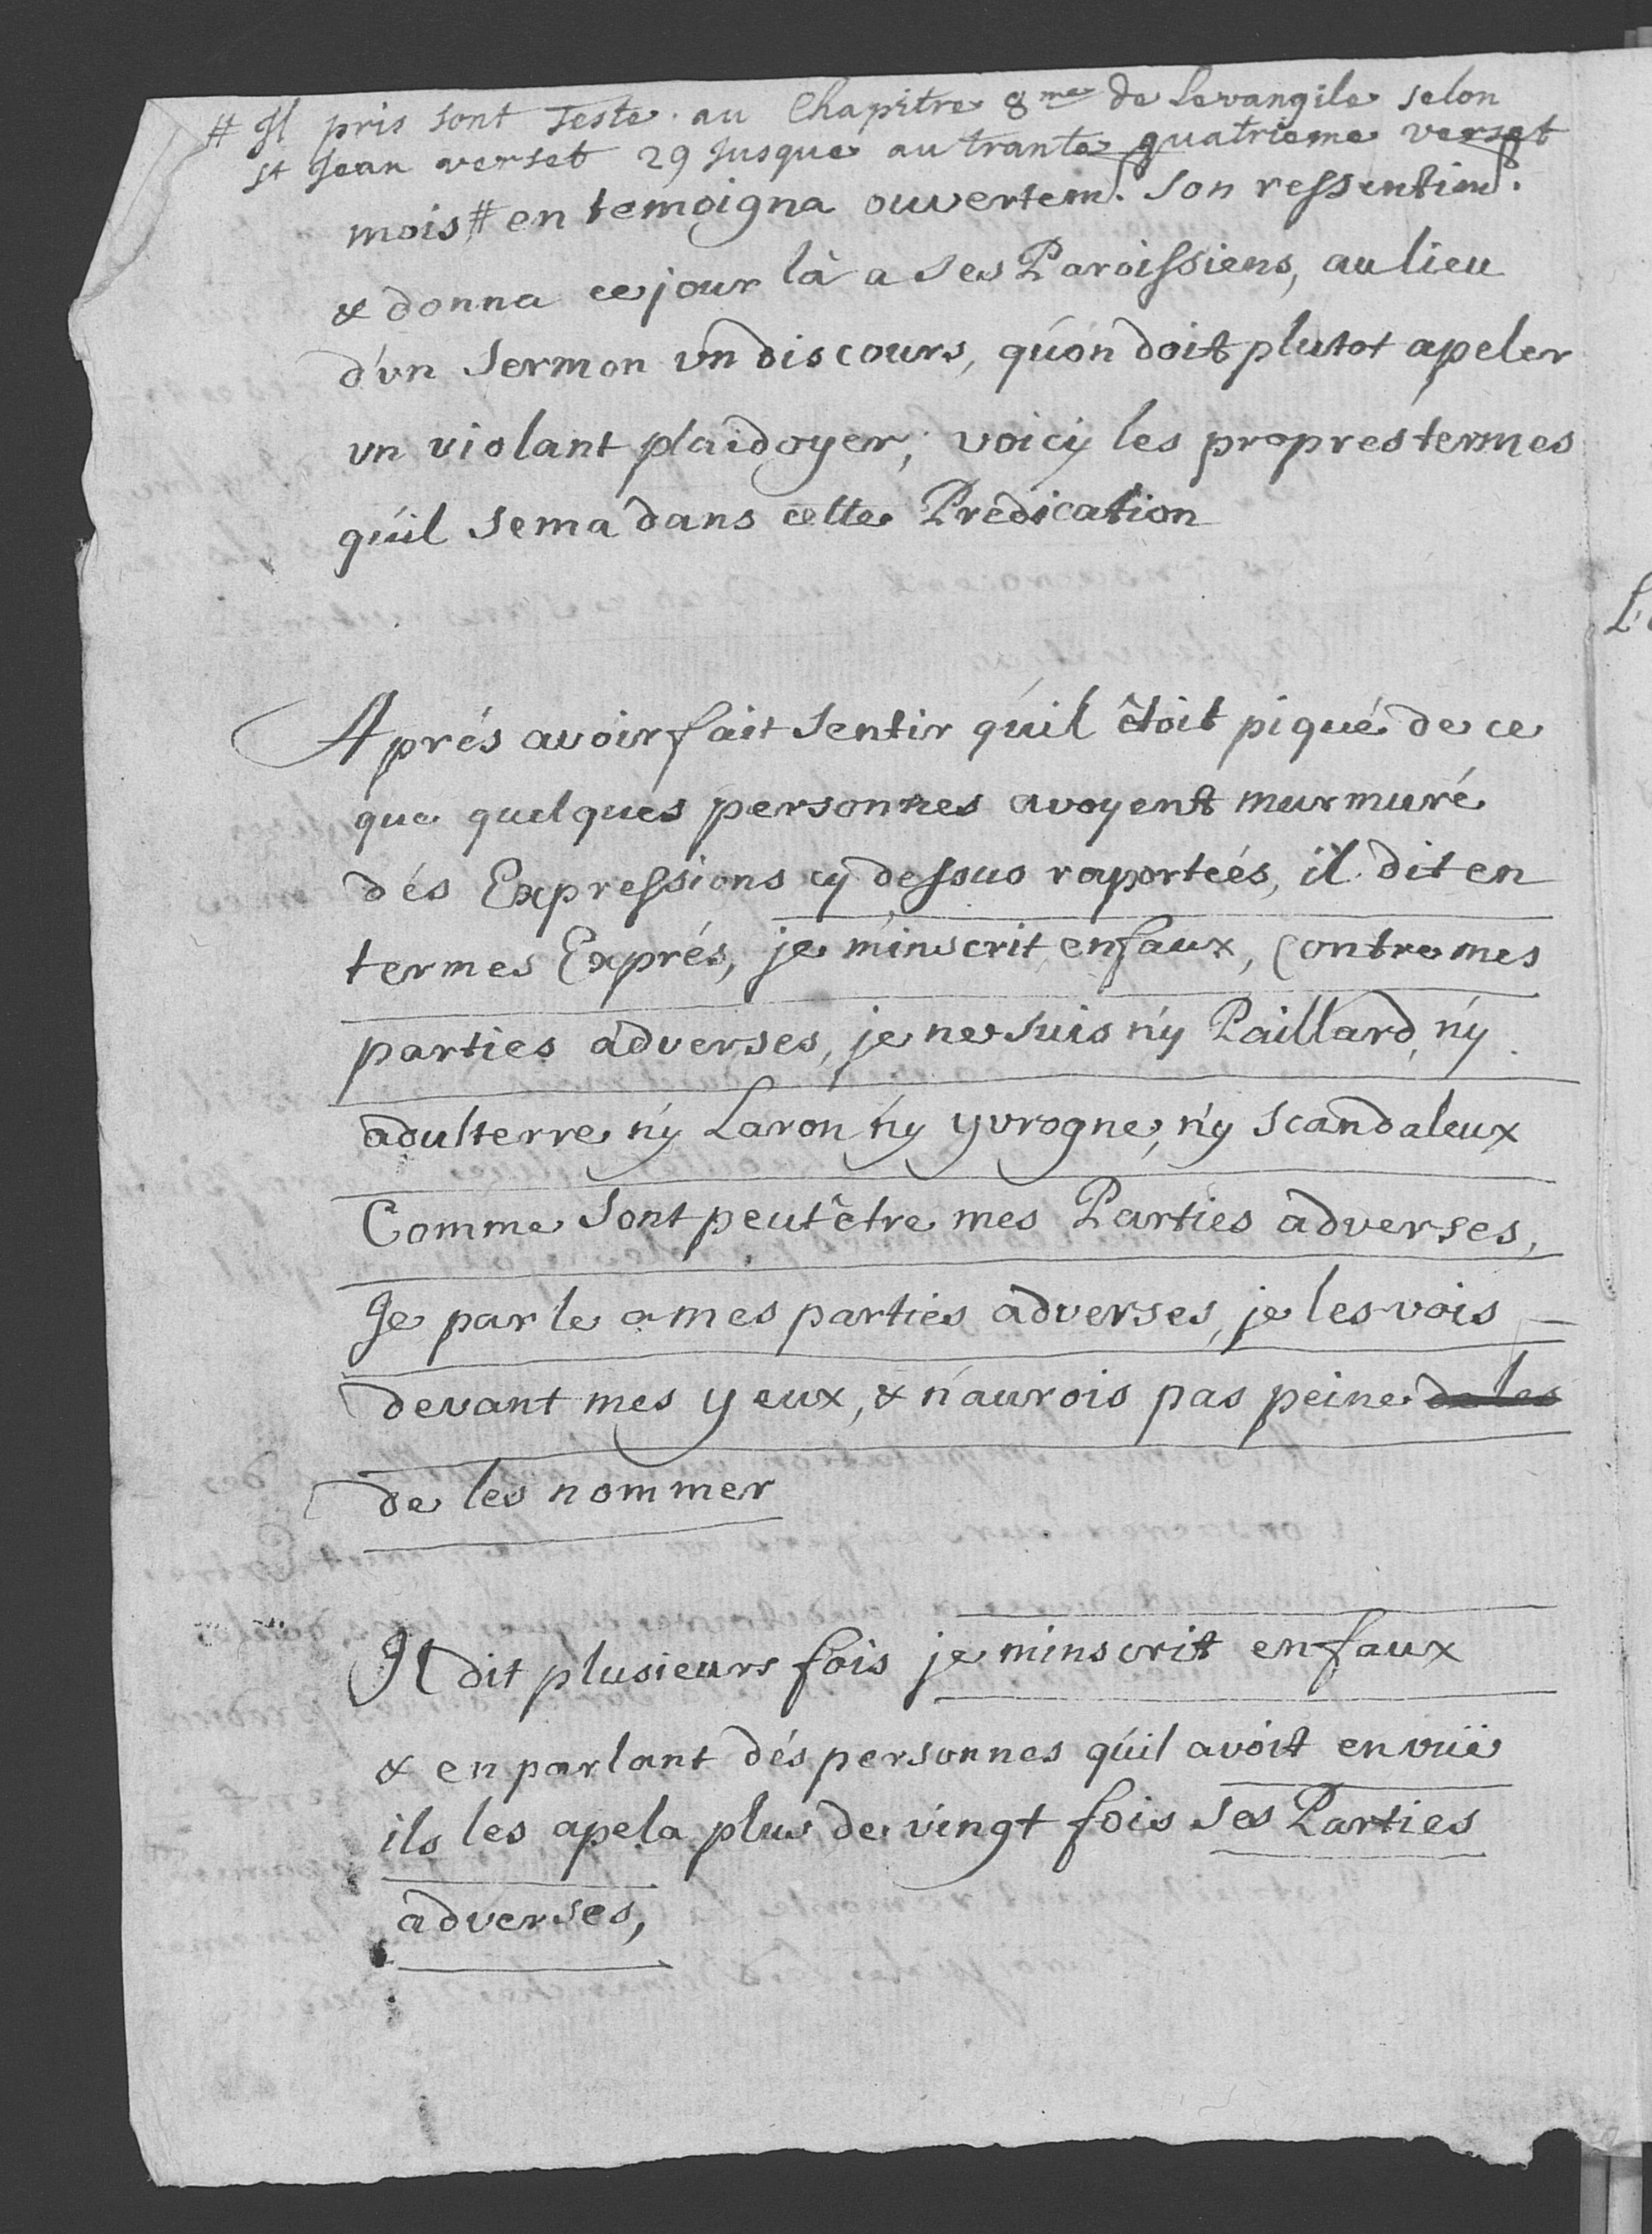 # Il pris sont Teste au Chapitre 8me de Levangile selon
st Jean verset 29 Jusque au trante quatrieme verset
mois # en temoigna ouvertemt. son ressentimt.
& donna ce jour là a ses Paroissiens, au lieu
d'vn Sermon vn discours, qu'on doit plutot apeler
vn violant plaidoyer, voicy les propres termes
qu'il sema dans cette Predication
Aprés avoir fait sentir qu'il êtoit piqué de ce
que quelques personnes avoyent murmuré
dés Expressions cy dessus raportéés, il dit en
termes Exprés, je m'inscrit en faux, Contre mes
parties adverses, je ne suis n'y Paillard, n'y
adulterre n'y Laron n'y yvrogne, n'y scandaleux
Comme sont peut être mes Parties adverses,
Je parle a mes parties adverses, je les vois
devant mes yeux, & n'aurois pas peine de les
de les nommer
Il dit plusieurs fois je m'inscrit en faux
& en parlant dés personnes qu'il avoit en vüe
ils les apela plus de vingt fois ses Parties
adverses,